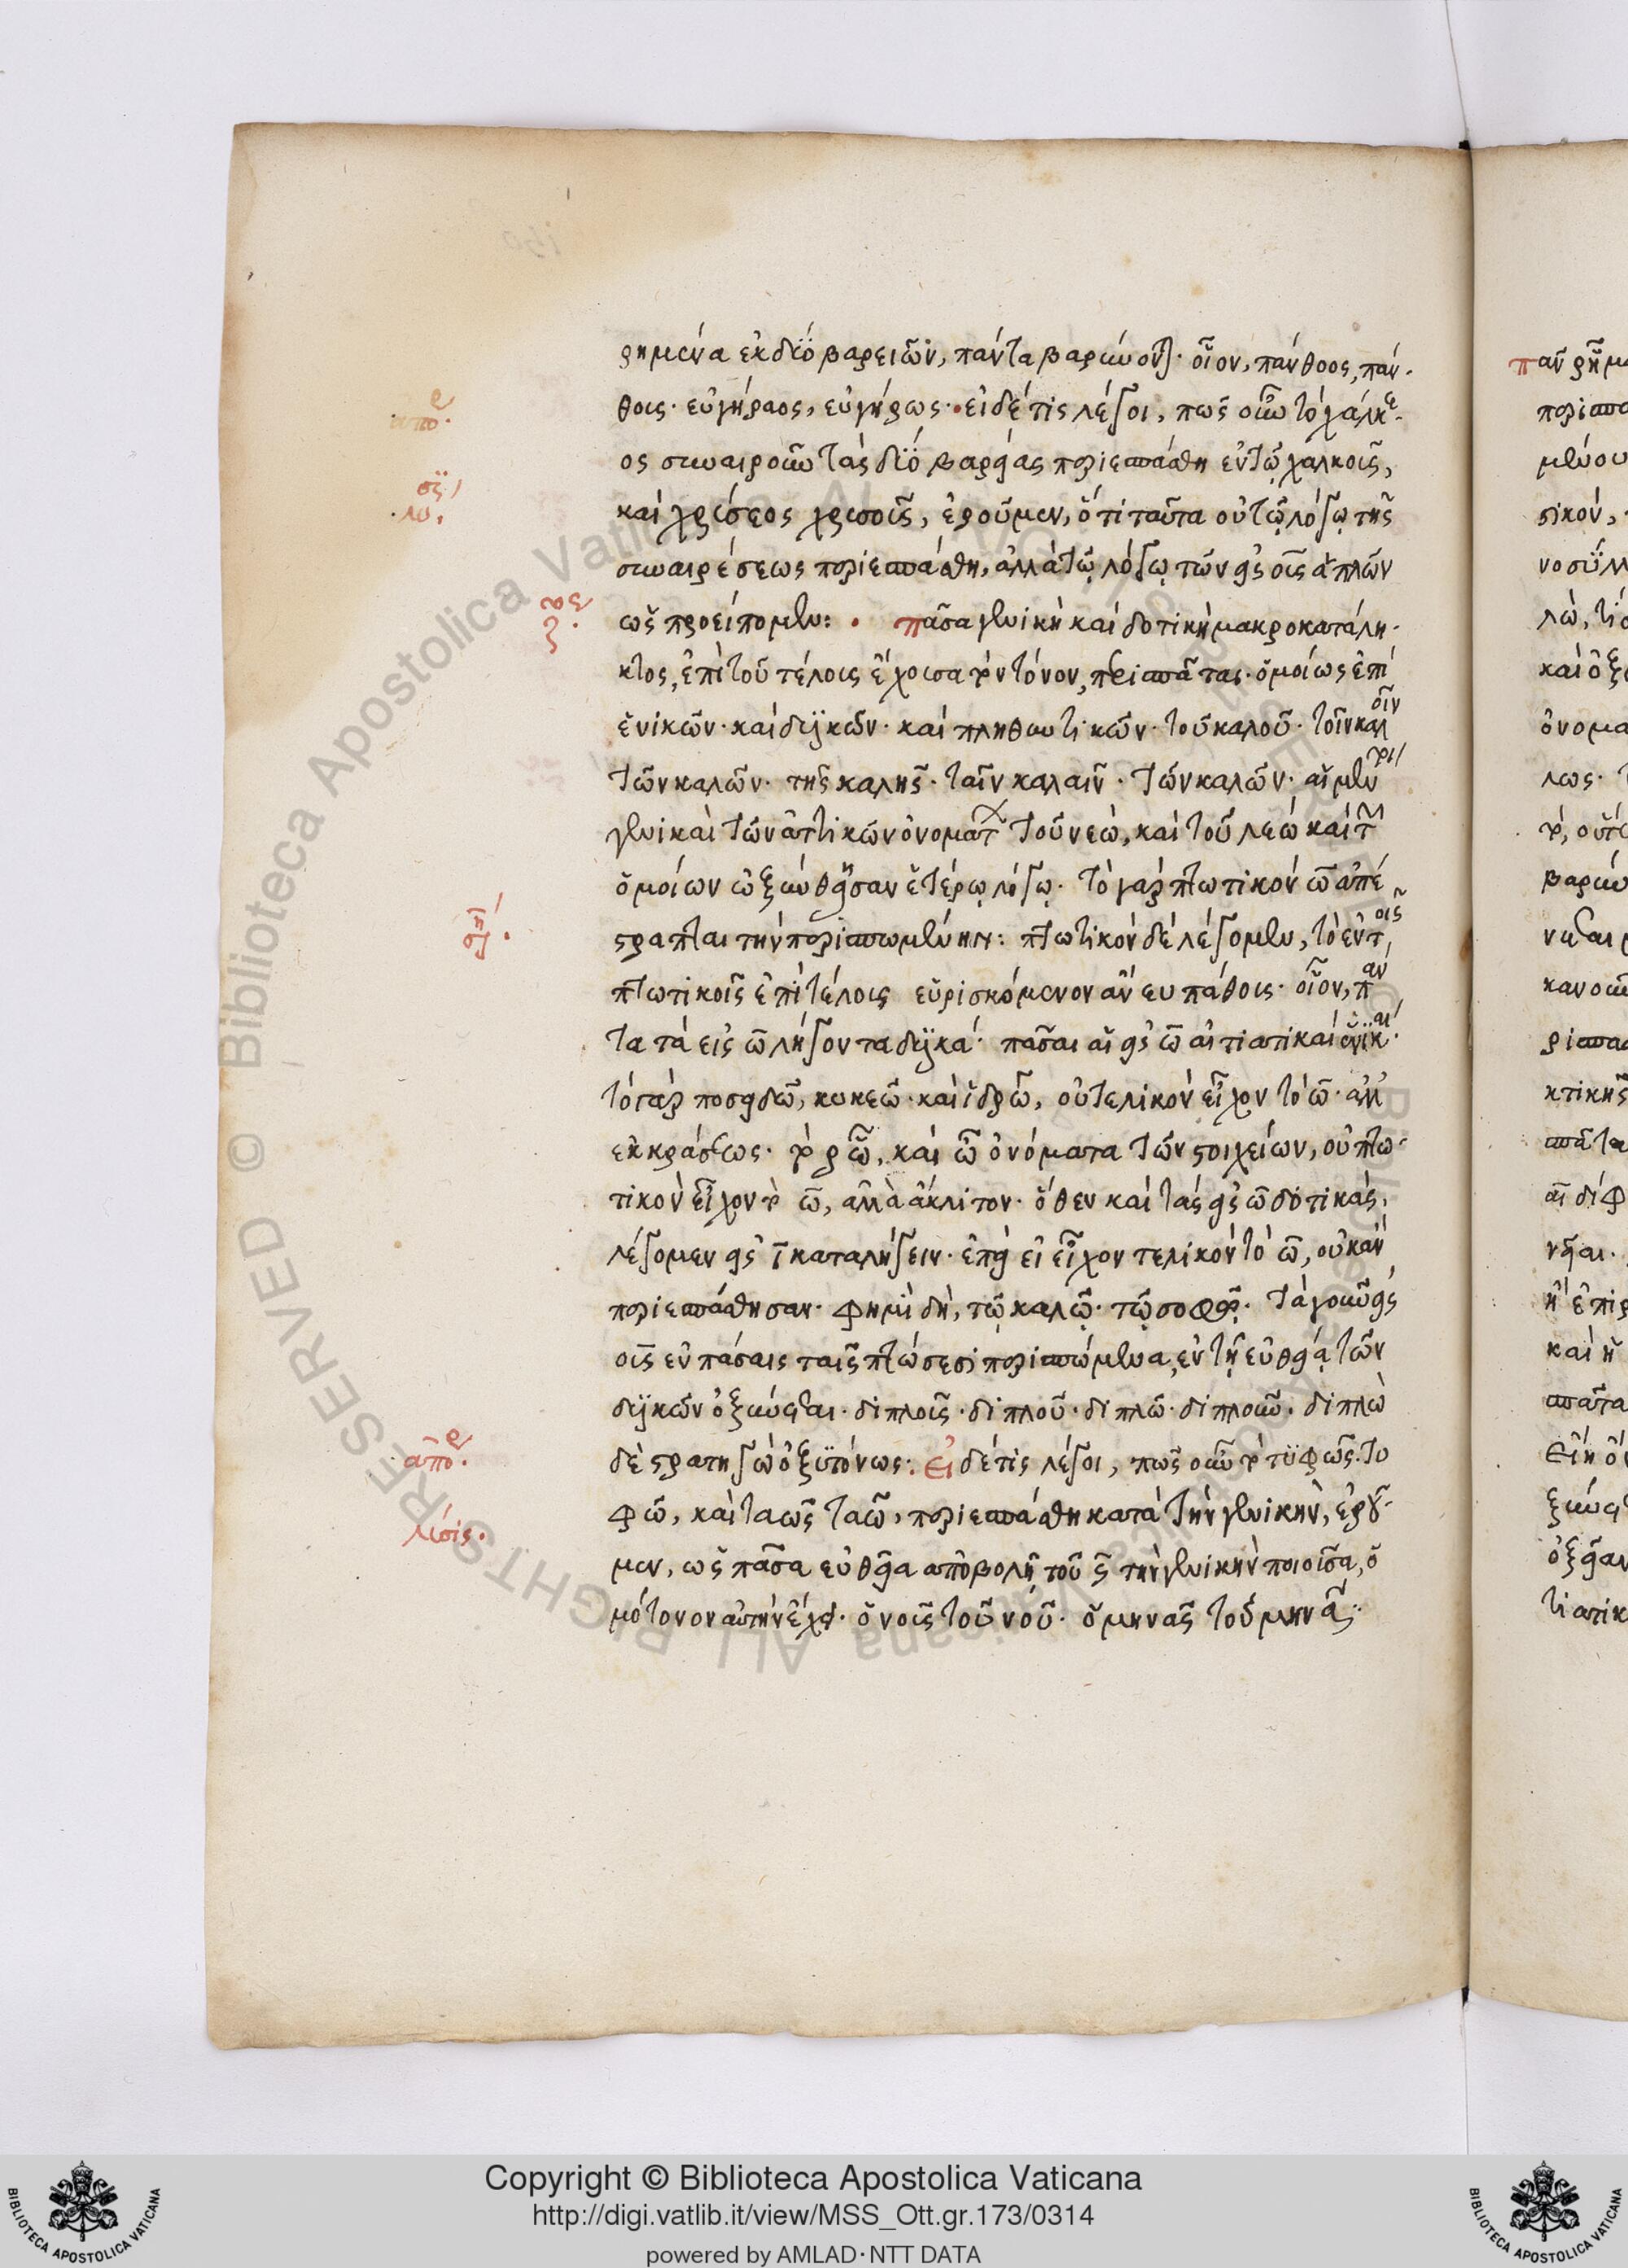 ρημένα ἐκ δύο βαρειῶν, πάντα βαρύνονται· οἷον, πάνθοος, πάν-
θους· εὐγήραος, εὐγήρως· εἰ δέ τις λέγοι, πῶς οὖν τὸ χάλκε-
ος συναιροῦν τὰς δύο βαρείας περιεσπάσθη ἐν τῷ χαλκοῦς,
καὶ χρύσεος χρυσοῦς, ἐροῦμεν, ὅτι ταῦτα οὐ τῷ λόγῳ τῆς
συναιρέσεως περιεσπάσθη, ἀλλὰ τῷ λόγῳ τῶν εἰς οῦς ἁπλῶν
ὡς προείπομεν: πᾶσα γενικὴ καὶ δοτικὴ μακροκατάλη-
κτος, ἐπὶ τοῦ τέλους ἔχουσα τὸν τόνον, περισπᾶται· ὁμοίως ἐπὶ
ἑνικῶν· καὶ δυϊκῶν· καὶ πληθυντικῶν· τοῦ καλοῦ· τοῖν καλοῖν
τῶν καλῶν· τῆς καλῆς· ταῖν καλαῖν· τῶν καλῶν· αἱ μέντοι
γενικαὶ τῶν ἀττικῶν ὀνομάτων τοῦ νεώ, καὶ τοῦ λεώ καὶ τῶν
ὁμοίων ὠξύνθησαν ἑτέρῳ λόγῳ· τὸ γὰρ πτωτικὸν ω ἀπέ
στραπται τὴν περισπωμένην: πτωτικὸν δὲ λέγομεν, τὸ ἐν τοῖς
πτωτικοῖς ἐπὶ τέλους εὑρισκόμενον ἄνευ πάθους· οἷον, πάν
τα τὰ εἰς ω λήγοντα δυϊκά· πᾶσαι αἱ εἰς ω αἰτιατικαὶ ἑνικαί·
τὸ γὰρ ποσειδῶ, κυκεῶ· καὶ ἱδρῶ, οὐ τελικὸν εἶχον τὸ ω· ἀλλ
ἐκ κράσεως· τὸ ρω, καὶ ω ὀνόματα τῶν στοιχείων, οὐ πτω-
τικὸν εἶχον τὸ ω, ἀλλὰ ἄκλιτον· ὅθεν καὶ τὰς εἰς ω δοτικὰς,
λέγομεν εἰς ι καταλήγειν· ἐπεὶ εἰ εἶχον τελικὸν τὸ ω, οὐκ ἂν
περιεσπάσθησαν· φημὶ δὴ, τῷ καλῷ· τῷ σοφῷ· τὰ γοῦν εἰς
οῦς ἐν πάσαις ταῖς πτώσεσι περισπώμενα, ἐν τῇ εὐθείᾳ τῶν
δυϊκῶν ὀξύνεται· διπλοῦς· διπλοῦ· διπλῶ· διπλοῦν· διπλὼ
δὲ στρατηγὼ ὀξυτόνως: εἰ δέ τις λέγοι, πῶς οὖν τὸ τυφῶς· τυ
φῶ, καὶ ταῶς ταῶ, περιεσπάσθη κατὰ τὴν γενικὴν, ἐροῦ-
μεν, ὡς πᾶσα εὐθεῖα ἀποβολῇ τοῦ ς τὴν γενικὴν ποιοῦσα, ὁ
μότονον αὐτὴν ἔχει· ὁ νοῦς τοῦ νοῦ· ὁ μηνᾶς τοῦ μηνᾶ:
ἀπορ·
λύσι·
ἀπορ·
λύσις·
Copyright © Biblioteca Apostolica Vaticana
http://digi.vatlib.it/view/MSS_Ott.gr.173/0314
powered by AMLAD·NTT DATA